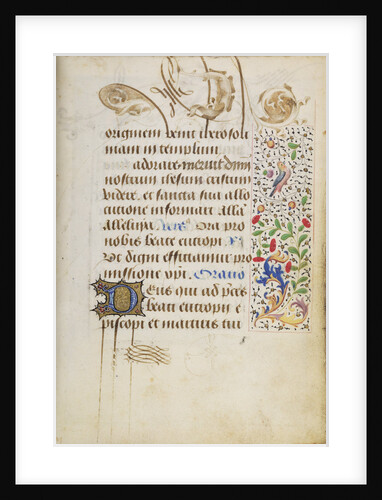 originem venit iherosoli
mam in templum
adorare meruit dnm
nostrum ihesum cristum
videre et sancta sui allo
cutione informari alla
alleluya vers9. Ora pro
nobis beate eutropi R
Ut digni efficiamur pro
missione xpi. Oratio
Deus qui ad preces
beati eutropii e
piscopi et martiris tui